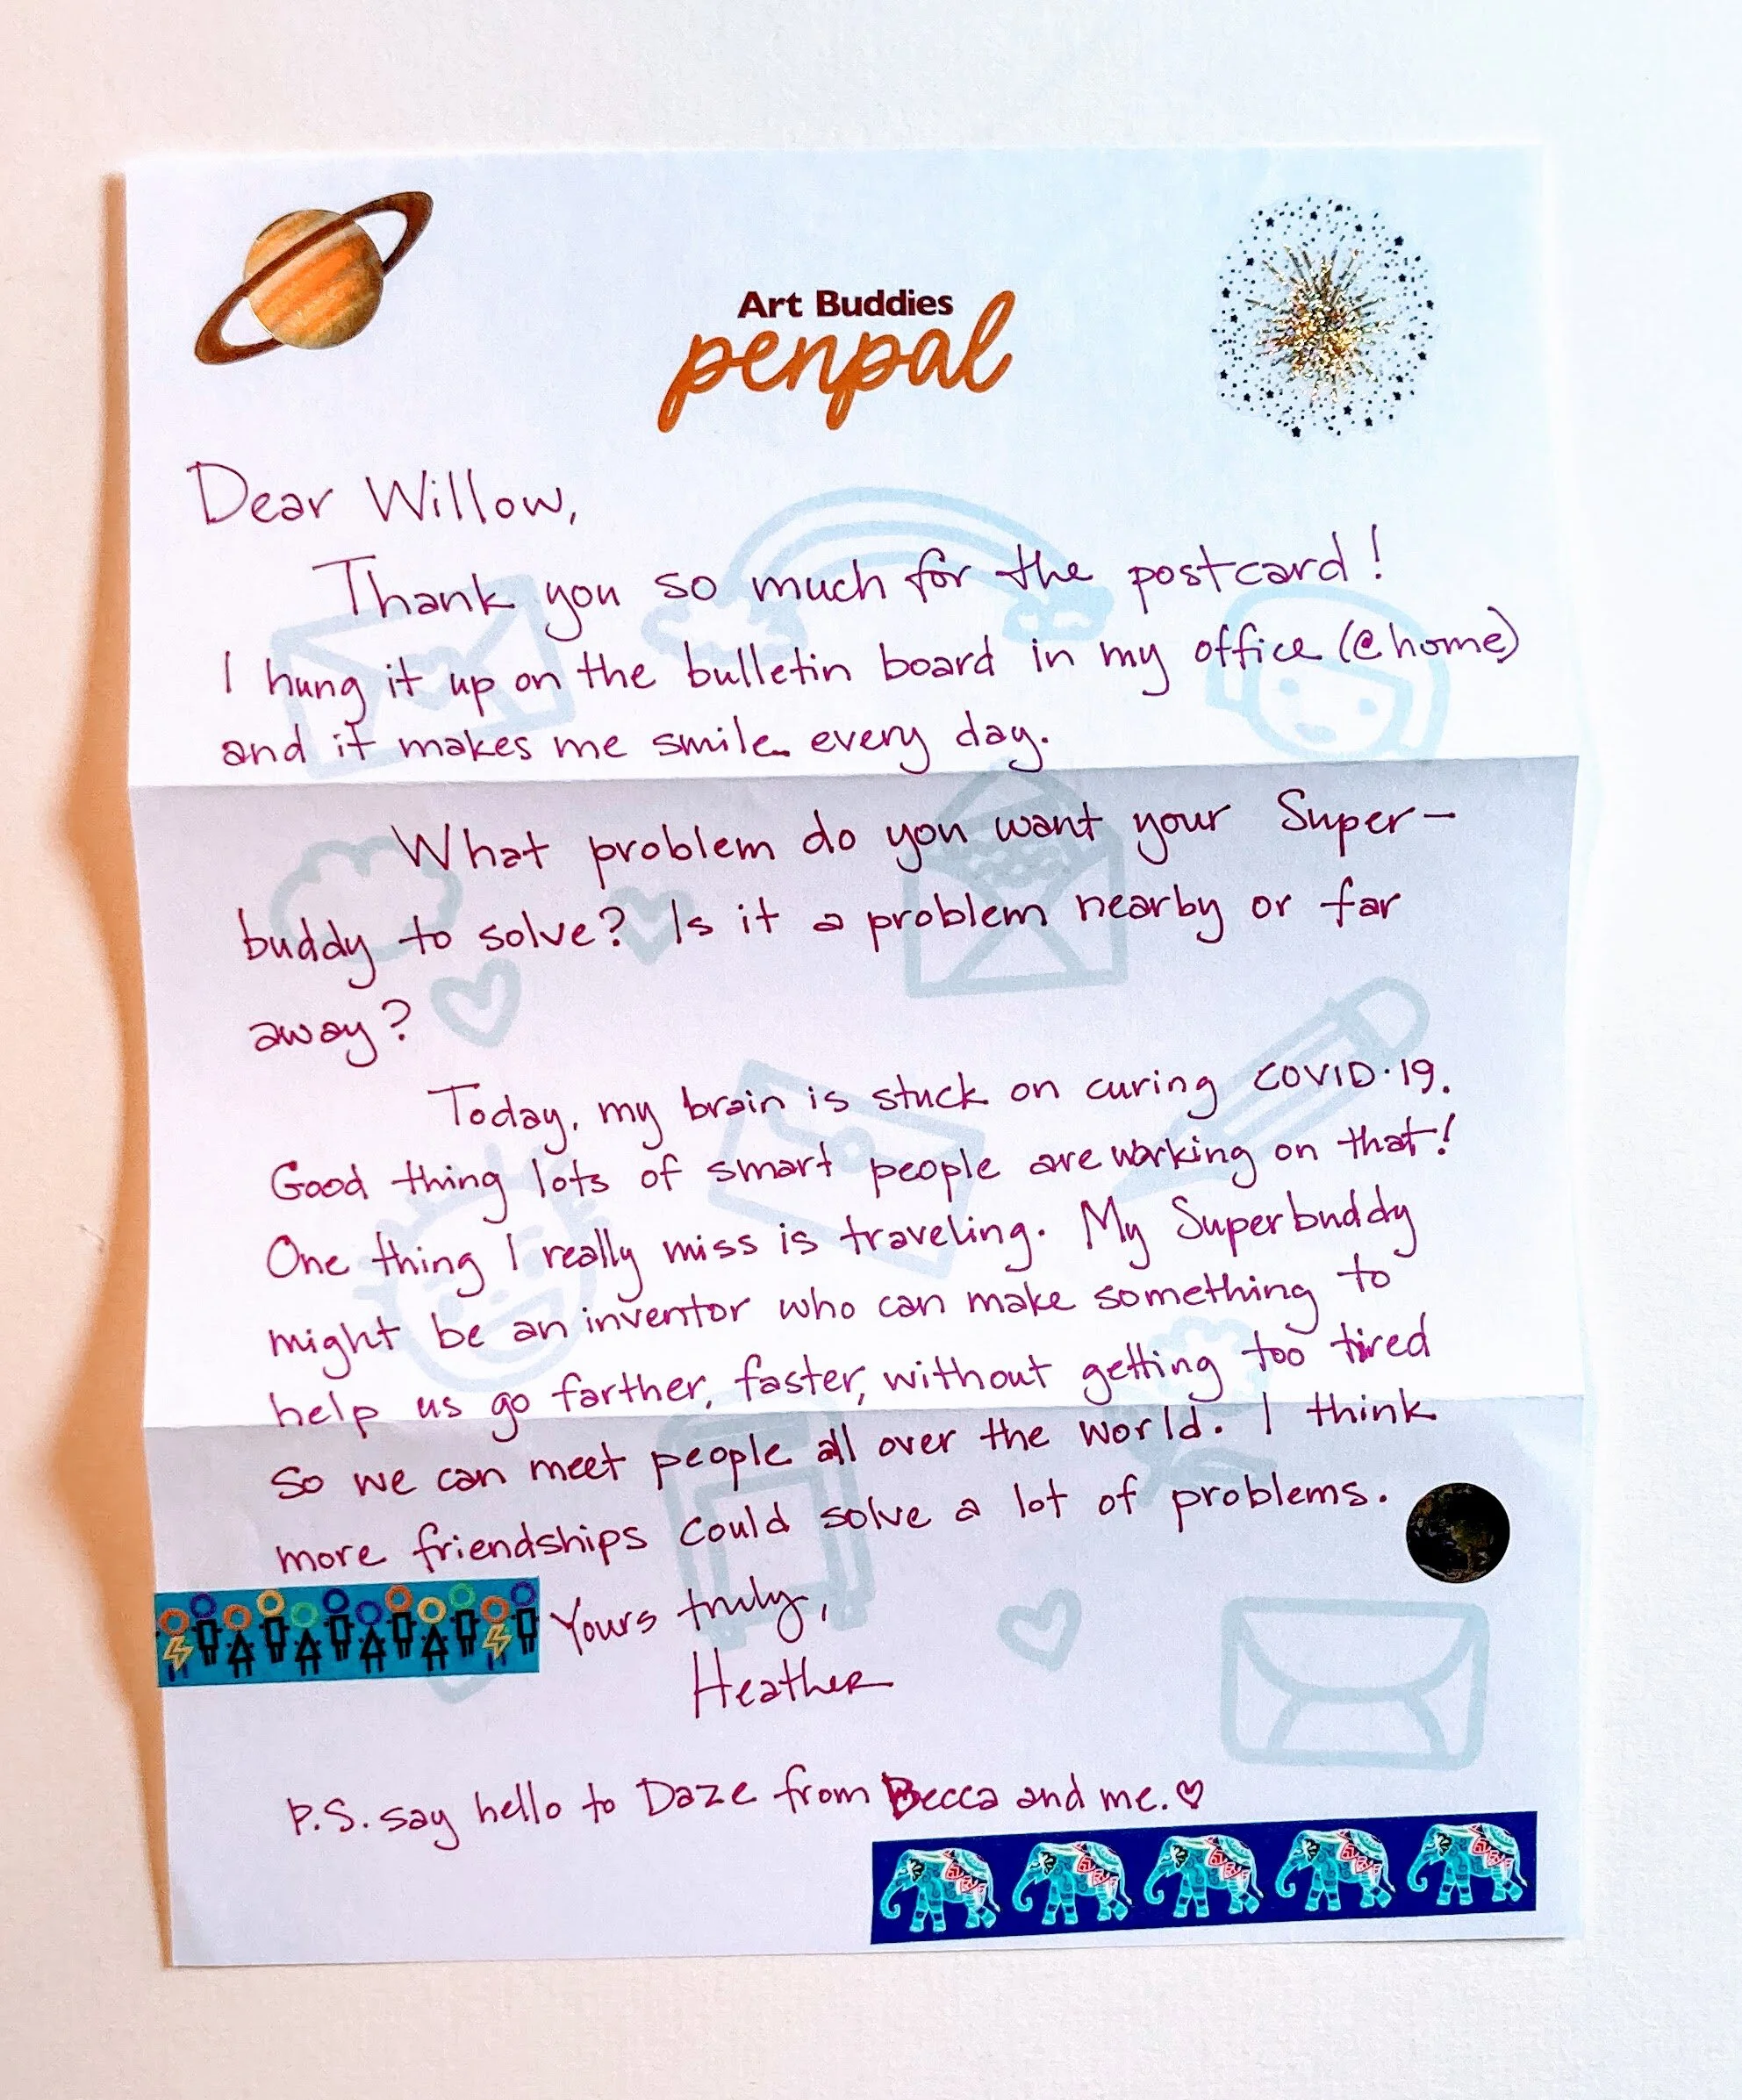 Art Buddies
penpal
Dear Willow,
Thank you so much for the postcard!
I hung it up on the bulletin board in my office (@home)
and it makes me smile every day.
What problem do you want your Super-
buddy to solve? Is it a problem nearby or far
away?
Today, my brain is stuck on curing COVID·19.
Good thing lots of smart people are working on that!
One thing I really miss is traveling. My Superbuddy
might be an inventor who can make something to
help us go farther, faster, without getting too tired
so we can meet people all over the world. I think
more friendships could solve a lot of problems.
Yours truly,
Heather
P.S. say hello to Daze from Becca and me. ♡